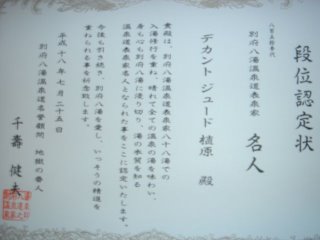 段位認定状
八百五拾壱代
別府八湯温泉道表泉家 名人
デカント ジュード 植原 殿
貴殿は、別府八湯温泉道表泉家八十八湯での
入湯修行を重ね、晴れて全ての温泉の湯を味わい、
身も心も別府八湯に浸りきり、湯の本質を知る
温泉道表泉家名人となられた事をここに認定いたします。
今後も引き続き、別府八湯を愛し、いっそうの精進を
重ねられる事を祈念致します。
平成十八年七月二十五日
別府八湯温泉道名誉顧問 地獄の番人
千壽 健夫